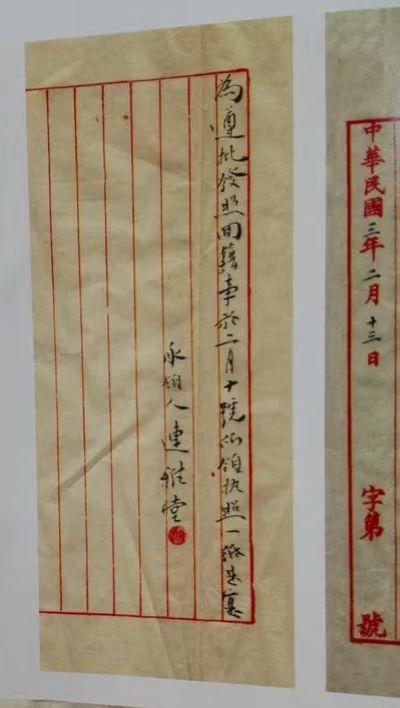 中華民國三年二月十三日 字第 號
為遵批發照回籍事於二月十號領執照一紙是實
承領人連雅堂